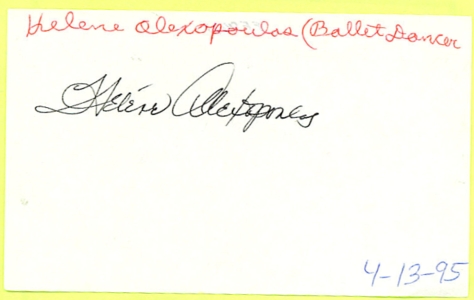 Helene Alexopoulos (Ballet Dancer
Hélène Alexopoulos
4-13-95